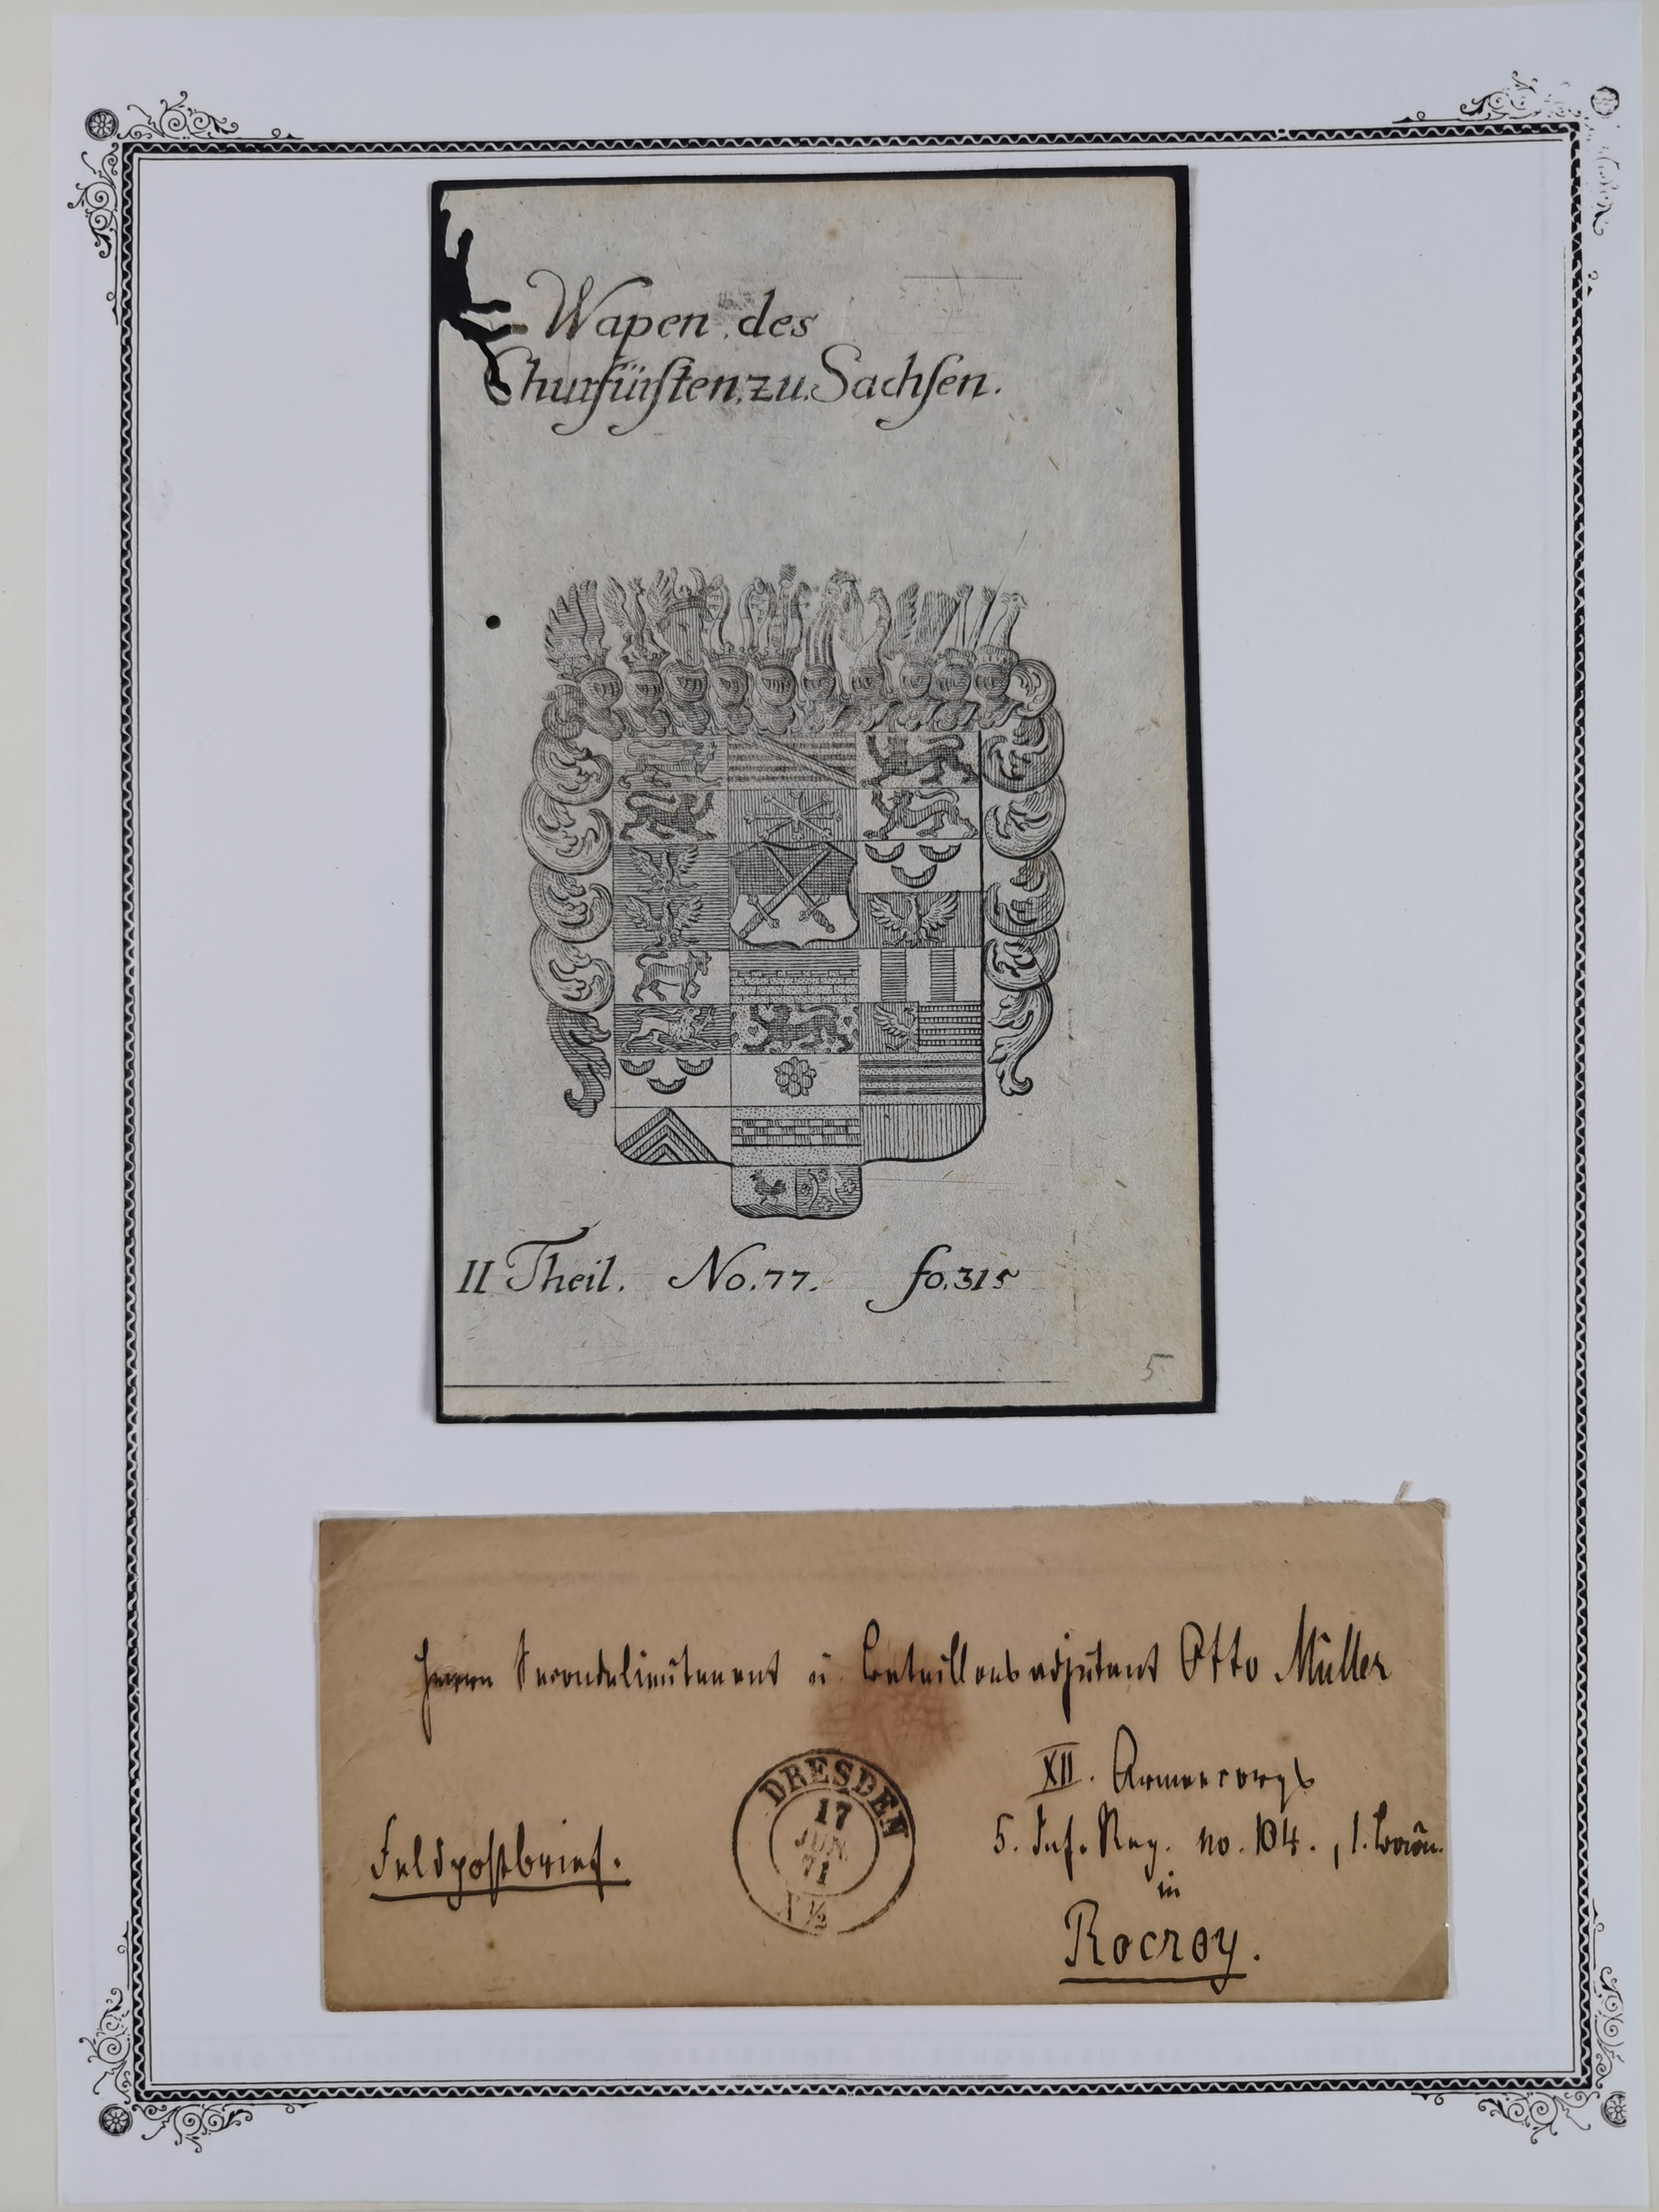 Wapen des
Churfürſten zu Sachſen.
II Theil. No. 77. fo. 315
5
Herrn Secondelieutenant u. Bataillonsadjutant Otto Müller
XII. Armeecorps
DRESDEN
17
JUN
71
X ½
Feldpostbrief.
5. Inf. Reg. no. 104., 1.
in
Rocroy.